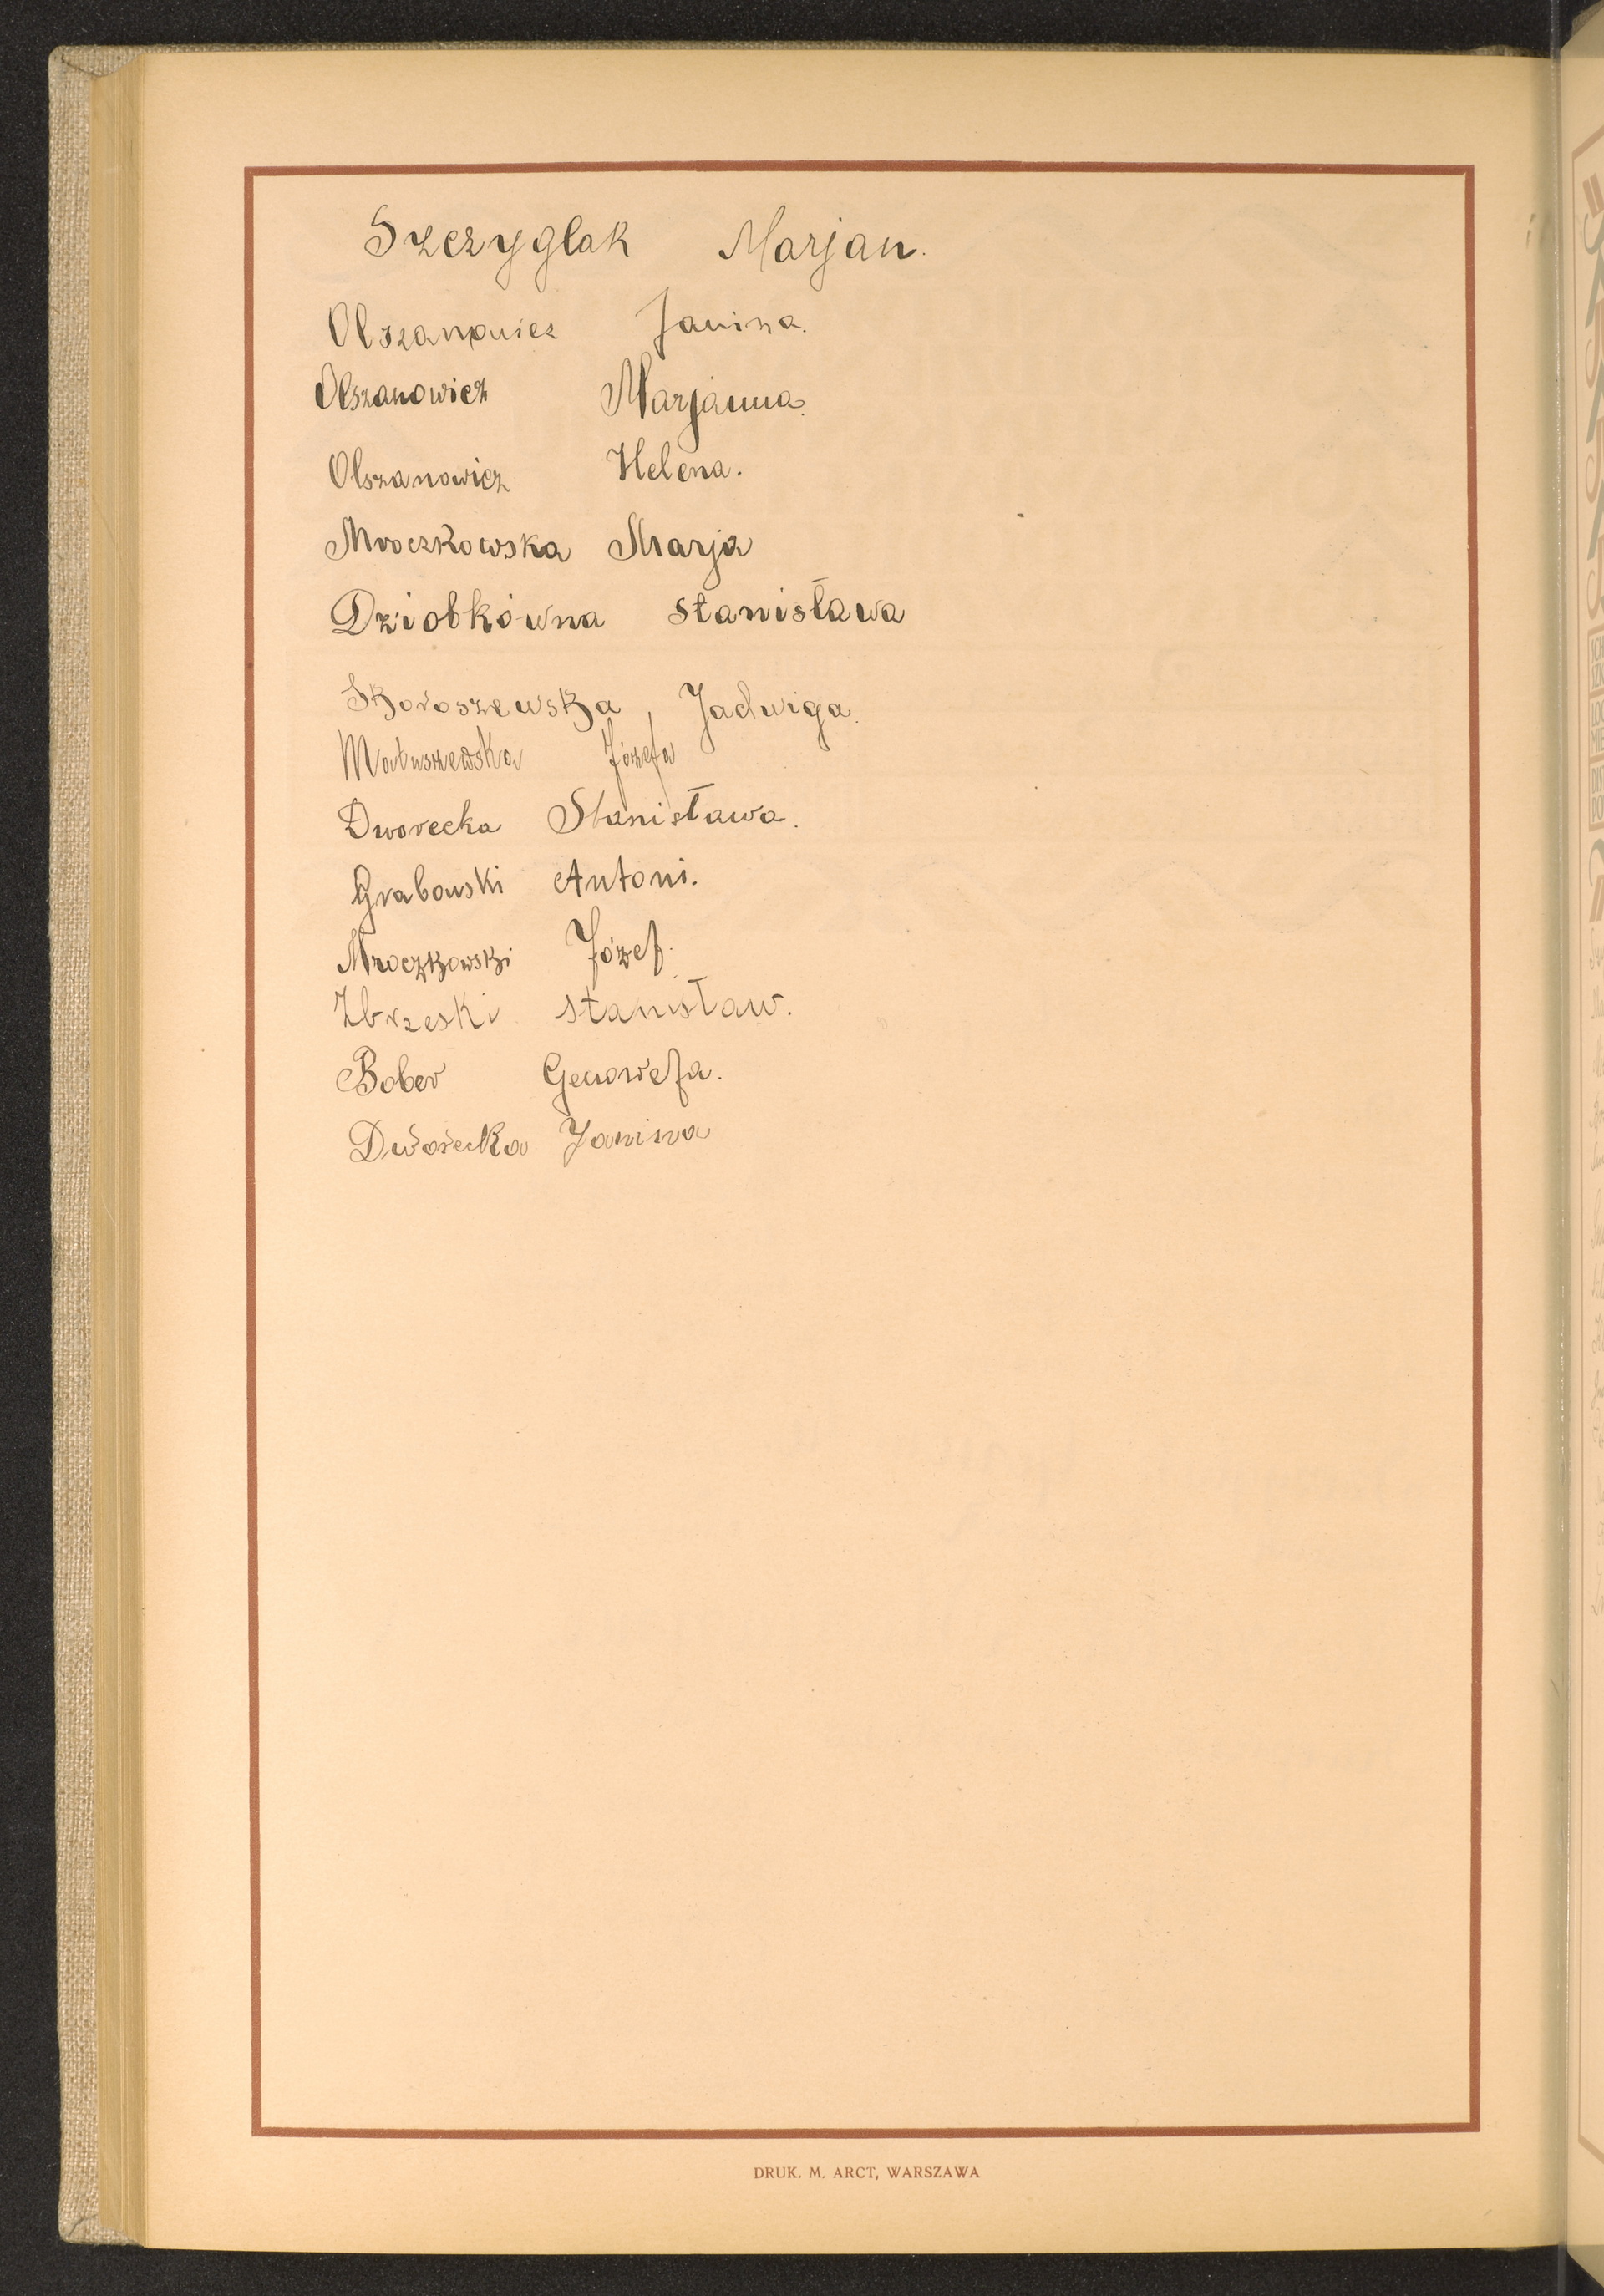 Szczyglak Marjan.
Olszanowicz Janina.
Olszanowicz Marjanna.
Olszanowicz Helena.
Mroczkowska Marja
Dziobkówna Stanisława
Skoroszewska, Jadwiga.
Matuszewska Józefa
Dworecka Stanisława.
Grabowski Antoni.
Mroczkowski Józef.
Zbrzeski Stanisław.
Bober Genowefa.
Dworecka Janina
DRUK. M. ARCT, WARSZAWA